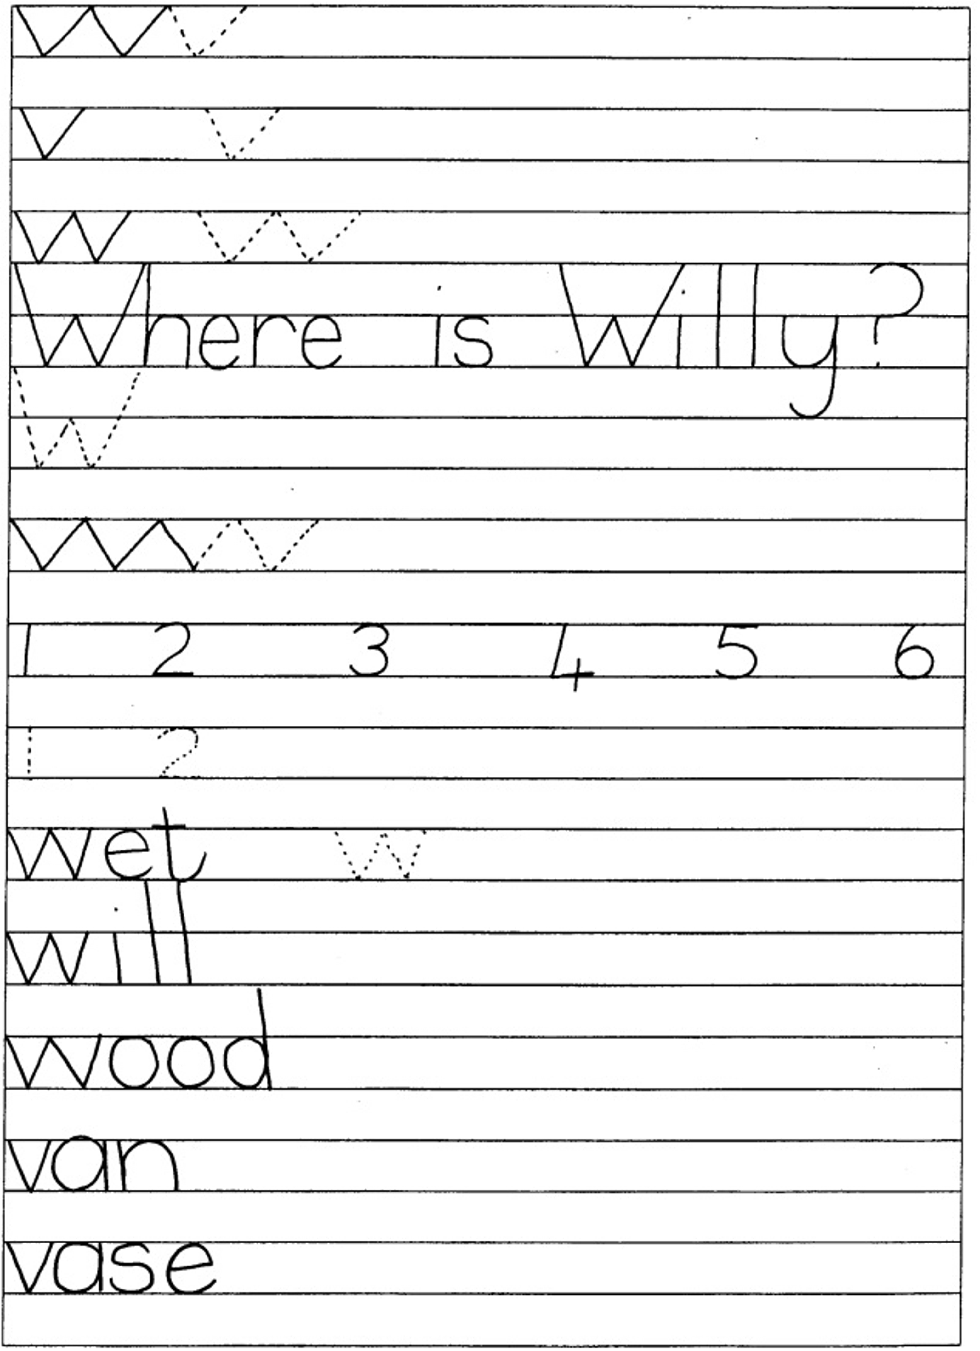 wv
v v
w w
Where is Willy?
W
ww
1 2 3 4 5 6
1 2
wet w
will
wood
van
vase